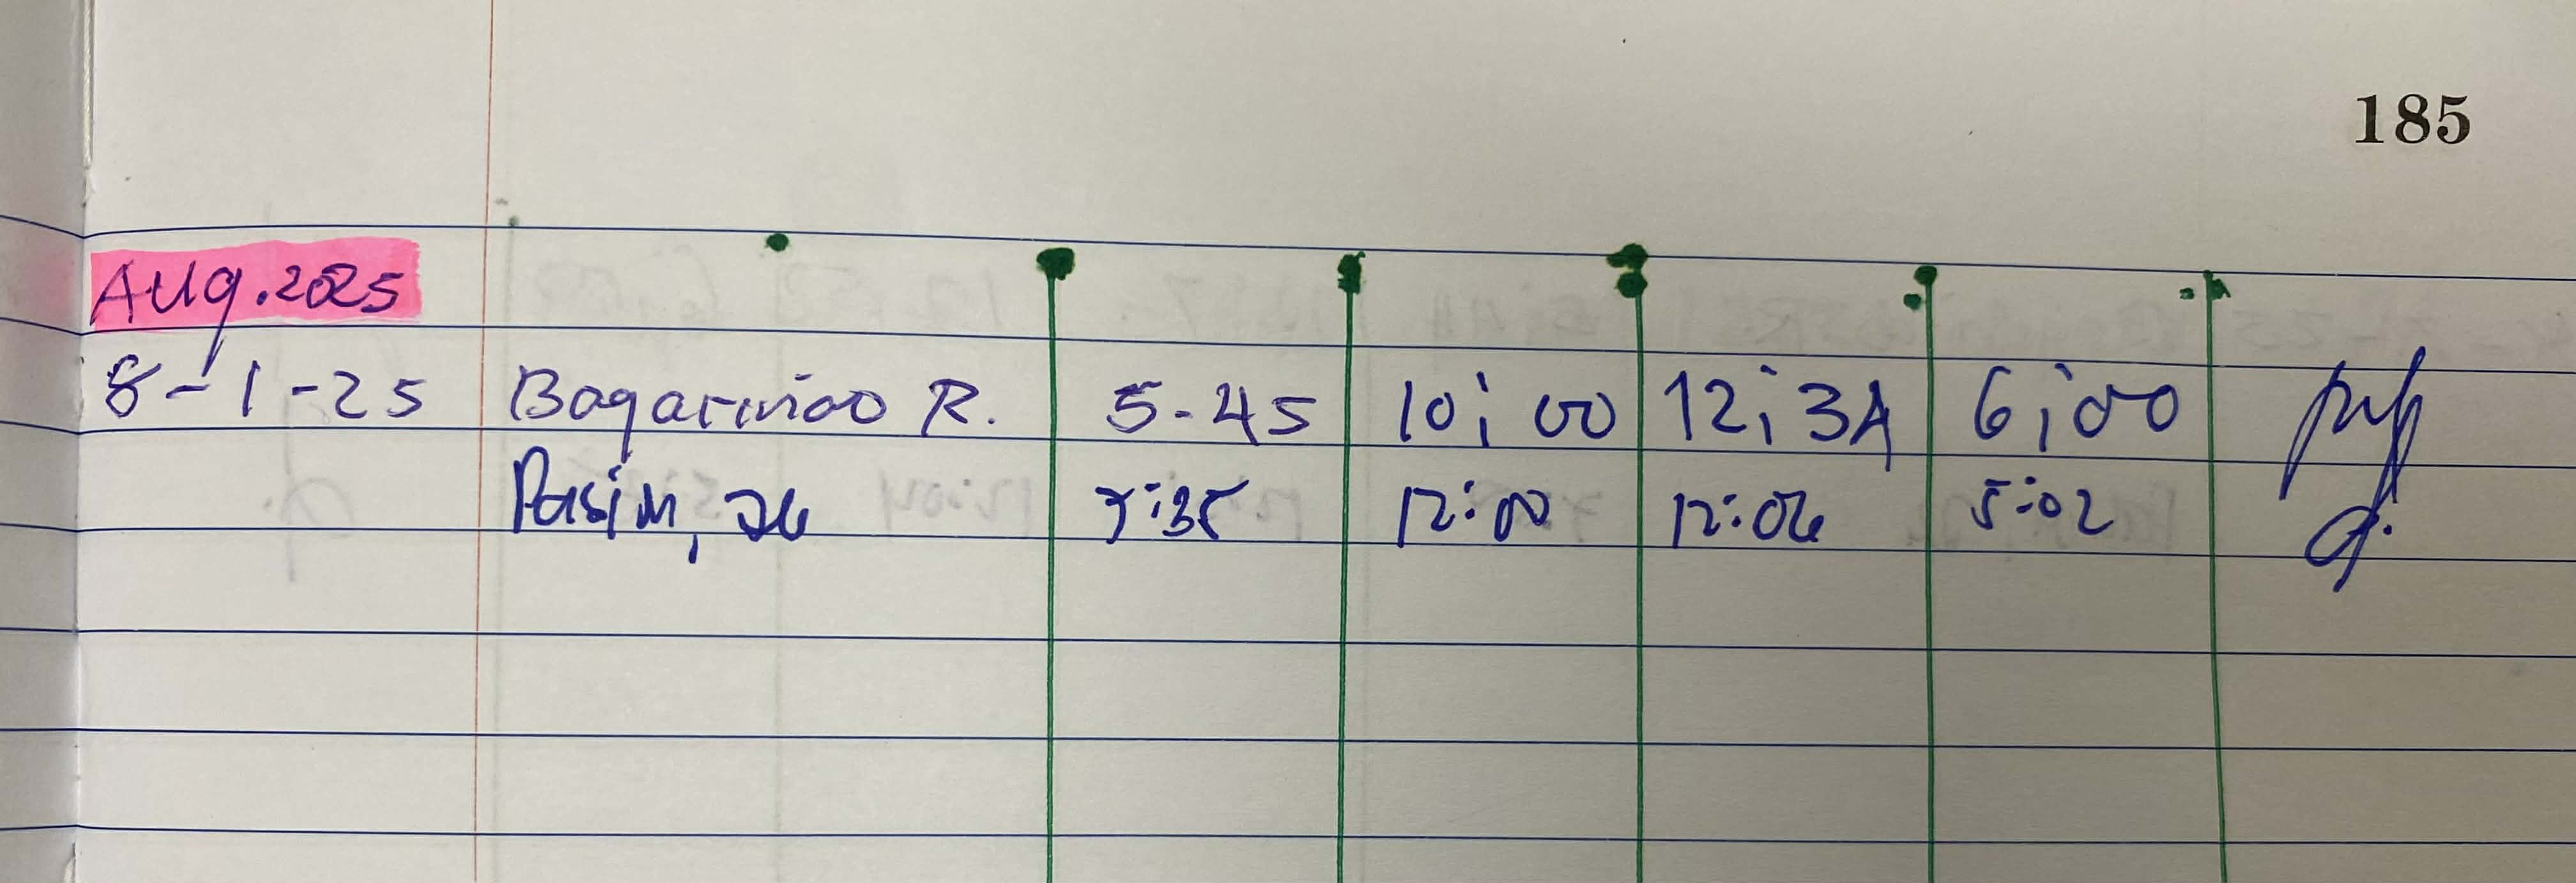 185
Aug. 2025
8-1-25 Bagarinao R. 5-45 10;00 12;34 6;00
Pasim, 7:35 12:00 12:06 5:02